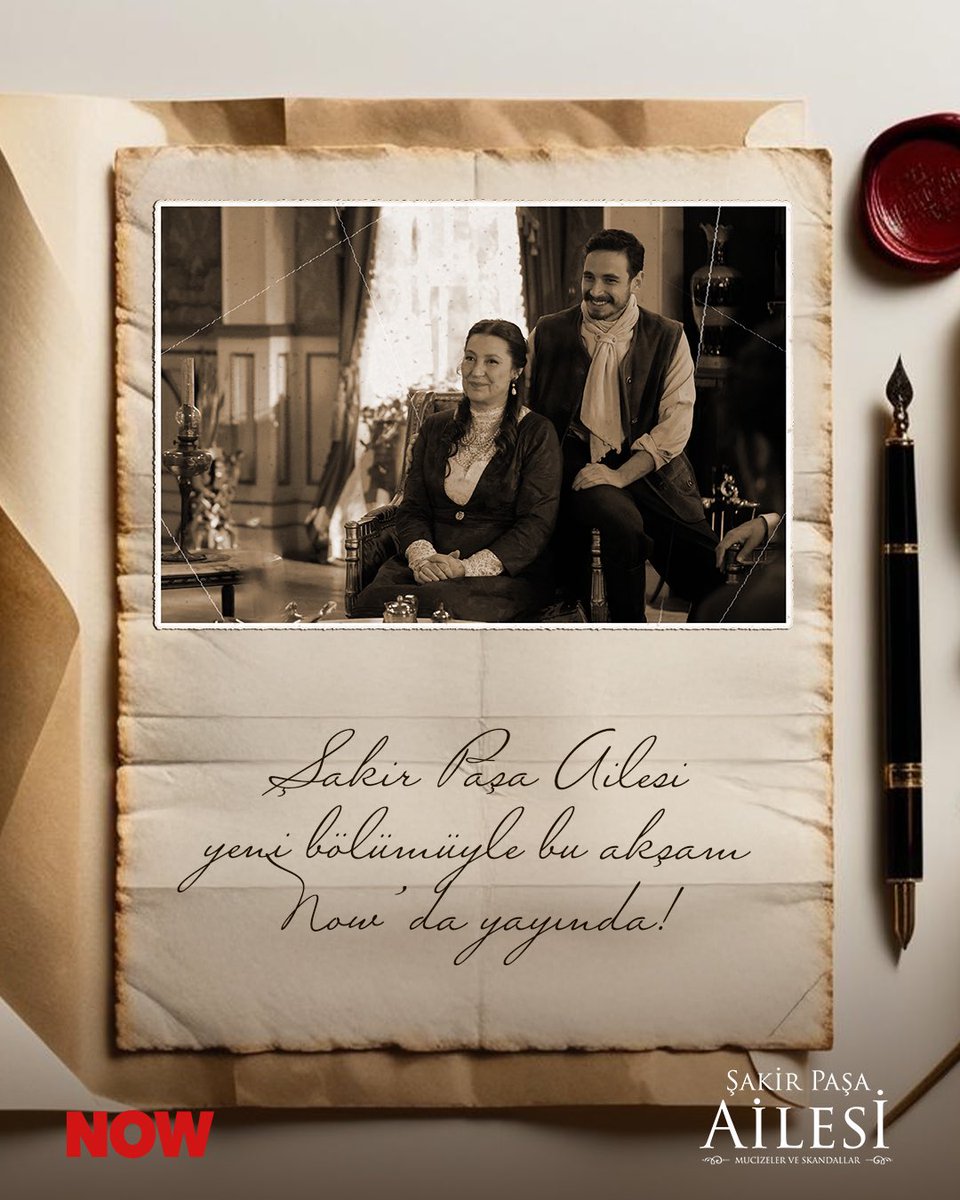 Şakir Paşa Ailesi
yeni bölümüyle bu akşam
Now'da yayında!
NOW
ŞAKİR PAŞA
AİLESİ
MUCİZELER VE SKANDALLAR